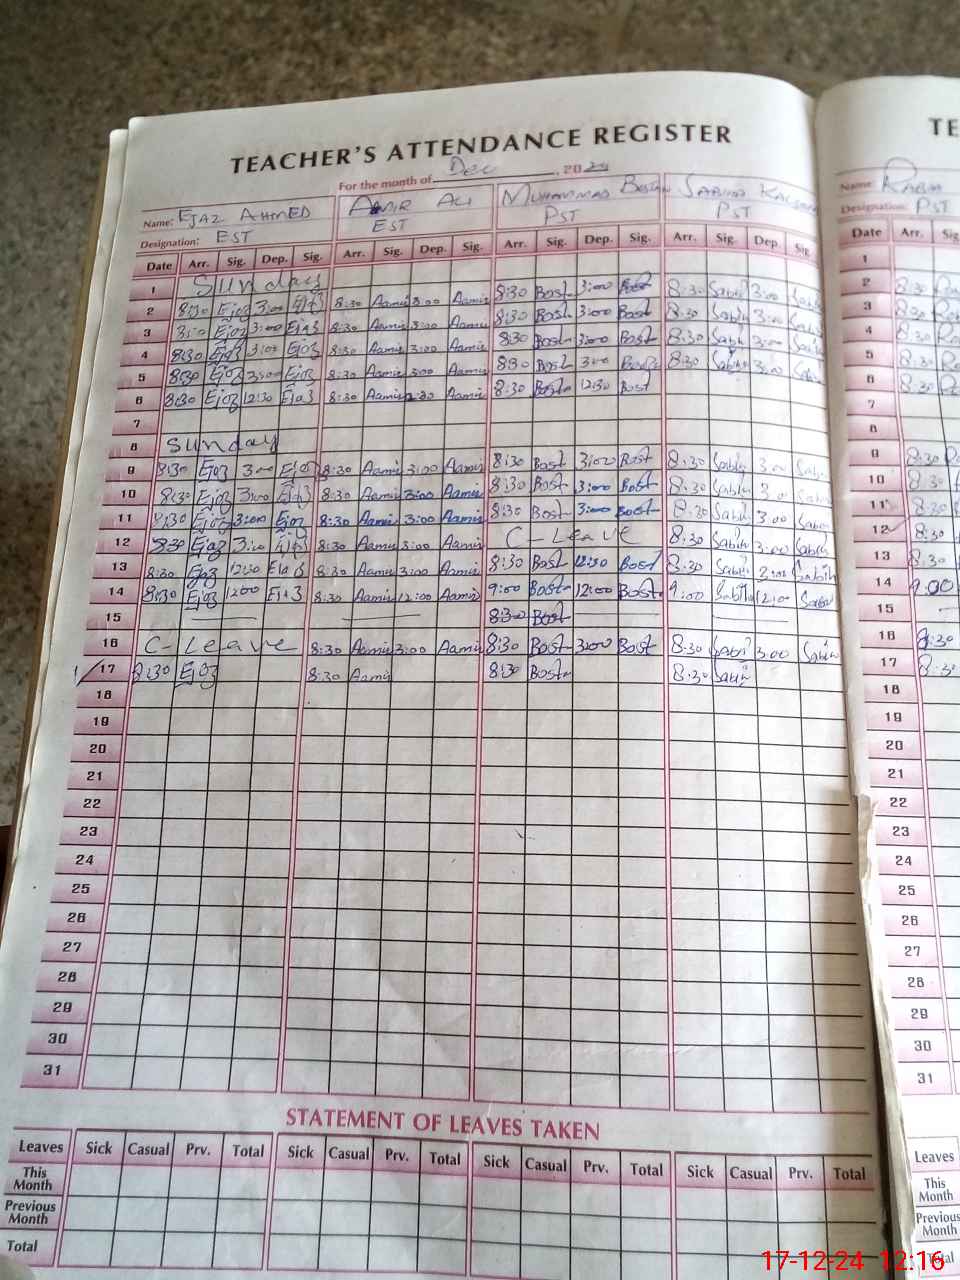 TEACHER'S ATTENDANCE REGISTER
For the month of Dec, 2024
Name: EJAZ AHMED AAMIR ALI MUHAMMAD BOSTAN SABIHA
Designation: EST EST PST PST
Date Arr. Sig. Dep. Sig. Arr. Sig. Dep. Sig. Arr. Sig. Dep. Sig. Arr. Sig. Dep. Sig.
1 Sunday
2 8:30 Ejaz 3:00 Ejaz 8:30 Aamir 3:00 Aamir 8:30 Bost 3:00 Bost 8:30 Sabih 3:00 Sabih
3 Ejaz 3:00 Ejaz 8:30 Aamir 3:00 Aamir 8:30 Bost 3:00 Bost 8:30 Sabih 3:00 Sabih
4 8:30 Ejaz 3:00 Ejaz 8:30 Aamir 3:00 Aamir 8:30 Bost 3:00 Bost 8:30 Sabih 3:00 Sabih
5 8:30 Ejaz 3:00 Ejaz 8:30 Aamir 3:00 Aamir 8:30 Bost 3:00 8:30 Sabih 3:00 Sabih
6 8:30 Ejaz 12:30 Ejaz 8:30 Aamir 12:30 Aamir 8:30 Bost 12:30 Bost
7
8 Sunday
9 8:30 Ejaz 3:00 Ejaz 8:30 Aamir 3:00 Aamir 8:30 Bost 3:00 Bost 8:30 Sabih 3:00 Sabih
10 8:30 Ejaz 3:00 Ejaz 8:30 Aamir 3:00 Aamir 8:30 Bost 3:00 Bost 8:30 Sabih 3:00 Sabih
11 8:30 Ejaz 3:00 Ejaz 8:30 Aamir 3:00 Aamir 8:30 Bost 3:00 Bost 8:30 Sabih 3:00 Sabih
12 8:30 Ejaz 3:00 Ejaz 8:30 Aamir 3:00 Aamir C-Leave 8:30 Sabih 3:00 Sabih
13 8:30 Ejaz 12:00 Ejaz 8:30 Aamir 3:00 Aamir 8:30 Bost 12:30 Bost 8:30 Sabih Sabih
14 8:30 Ejaz 12:00 Ejaz 8:30 Aamir 12:00 Aamir 9:00 Bost 12:00 Bost 9:00 Sabih 12:00 Sabih
15 8:30 Bost
16 C-Leave 8:30 Aamir 3:00 Aamir 8:30 Bost 3:00 Bost 8:30 Sabih 3:00 Sabih
17 8:30 Ejaz 8:30 Aamir 8:30 Bost 8:30 Sabih
18
19
20
21
22
23
24
25
26
27
28
29
30
31
STATEMENT OF LEAVES TAKEN
Leaves Sick Casual Prv. Total Sick Casual Prv. Total Sick Casual Prv. Total Sick Casual Prv. Total
This Month
Previous Month
Total
TE
Name: Rabia
Designation: PST
Date Arr. Sig
1
2 8:30
3 8:30
4 8:30
5 8:30
6 8:30
7
8
9 8:30
10 8:30
11 8:30
12 8:30
13 8:30
14 9:00
15
16 8:30
17 8:30
18
19
20
21
22
23
24
25
26
27
28
29
30
31
Leaves
This Month
Previous Month
Total
17-12-24 12:16